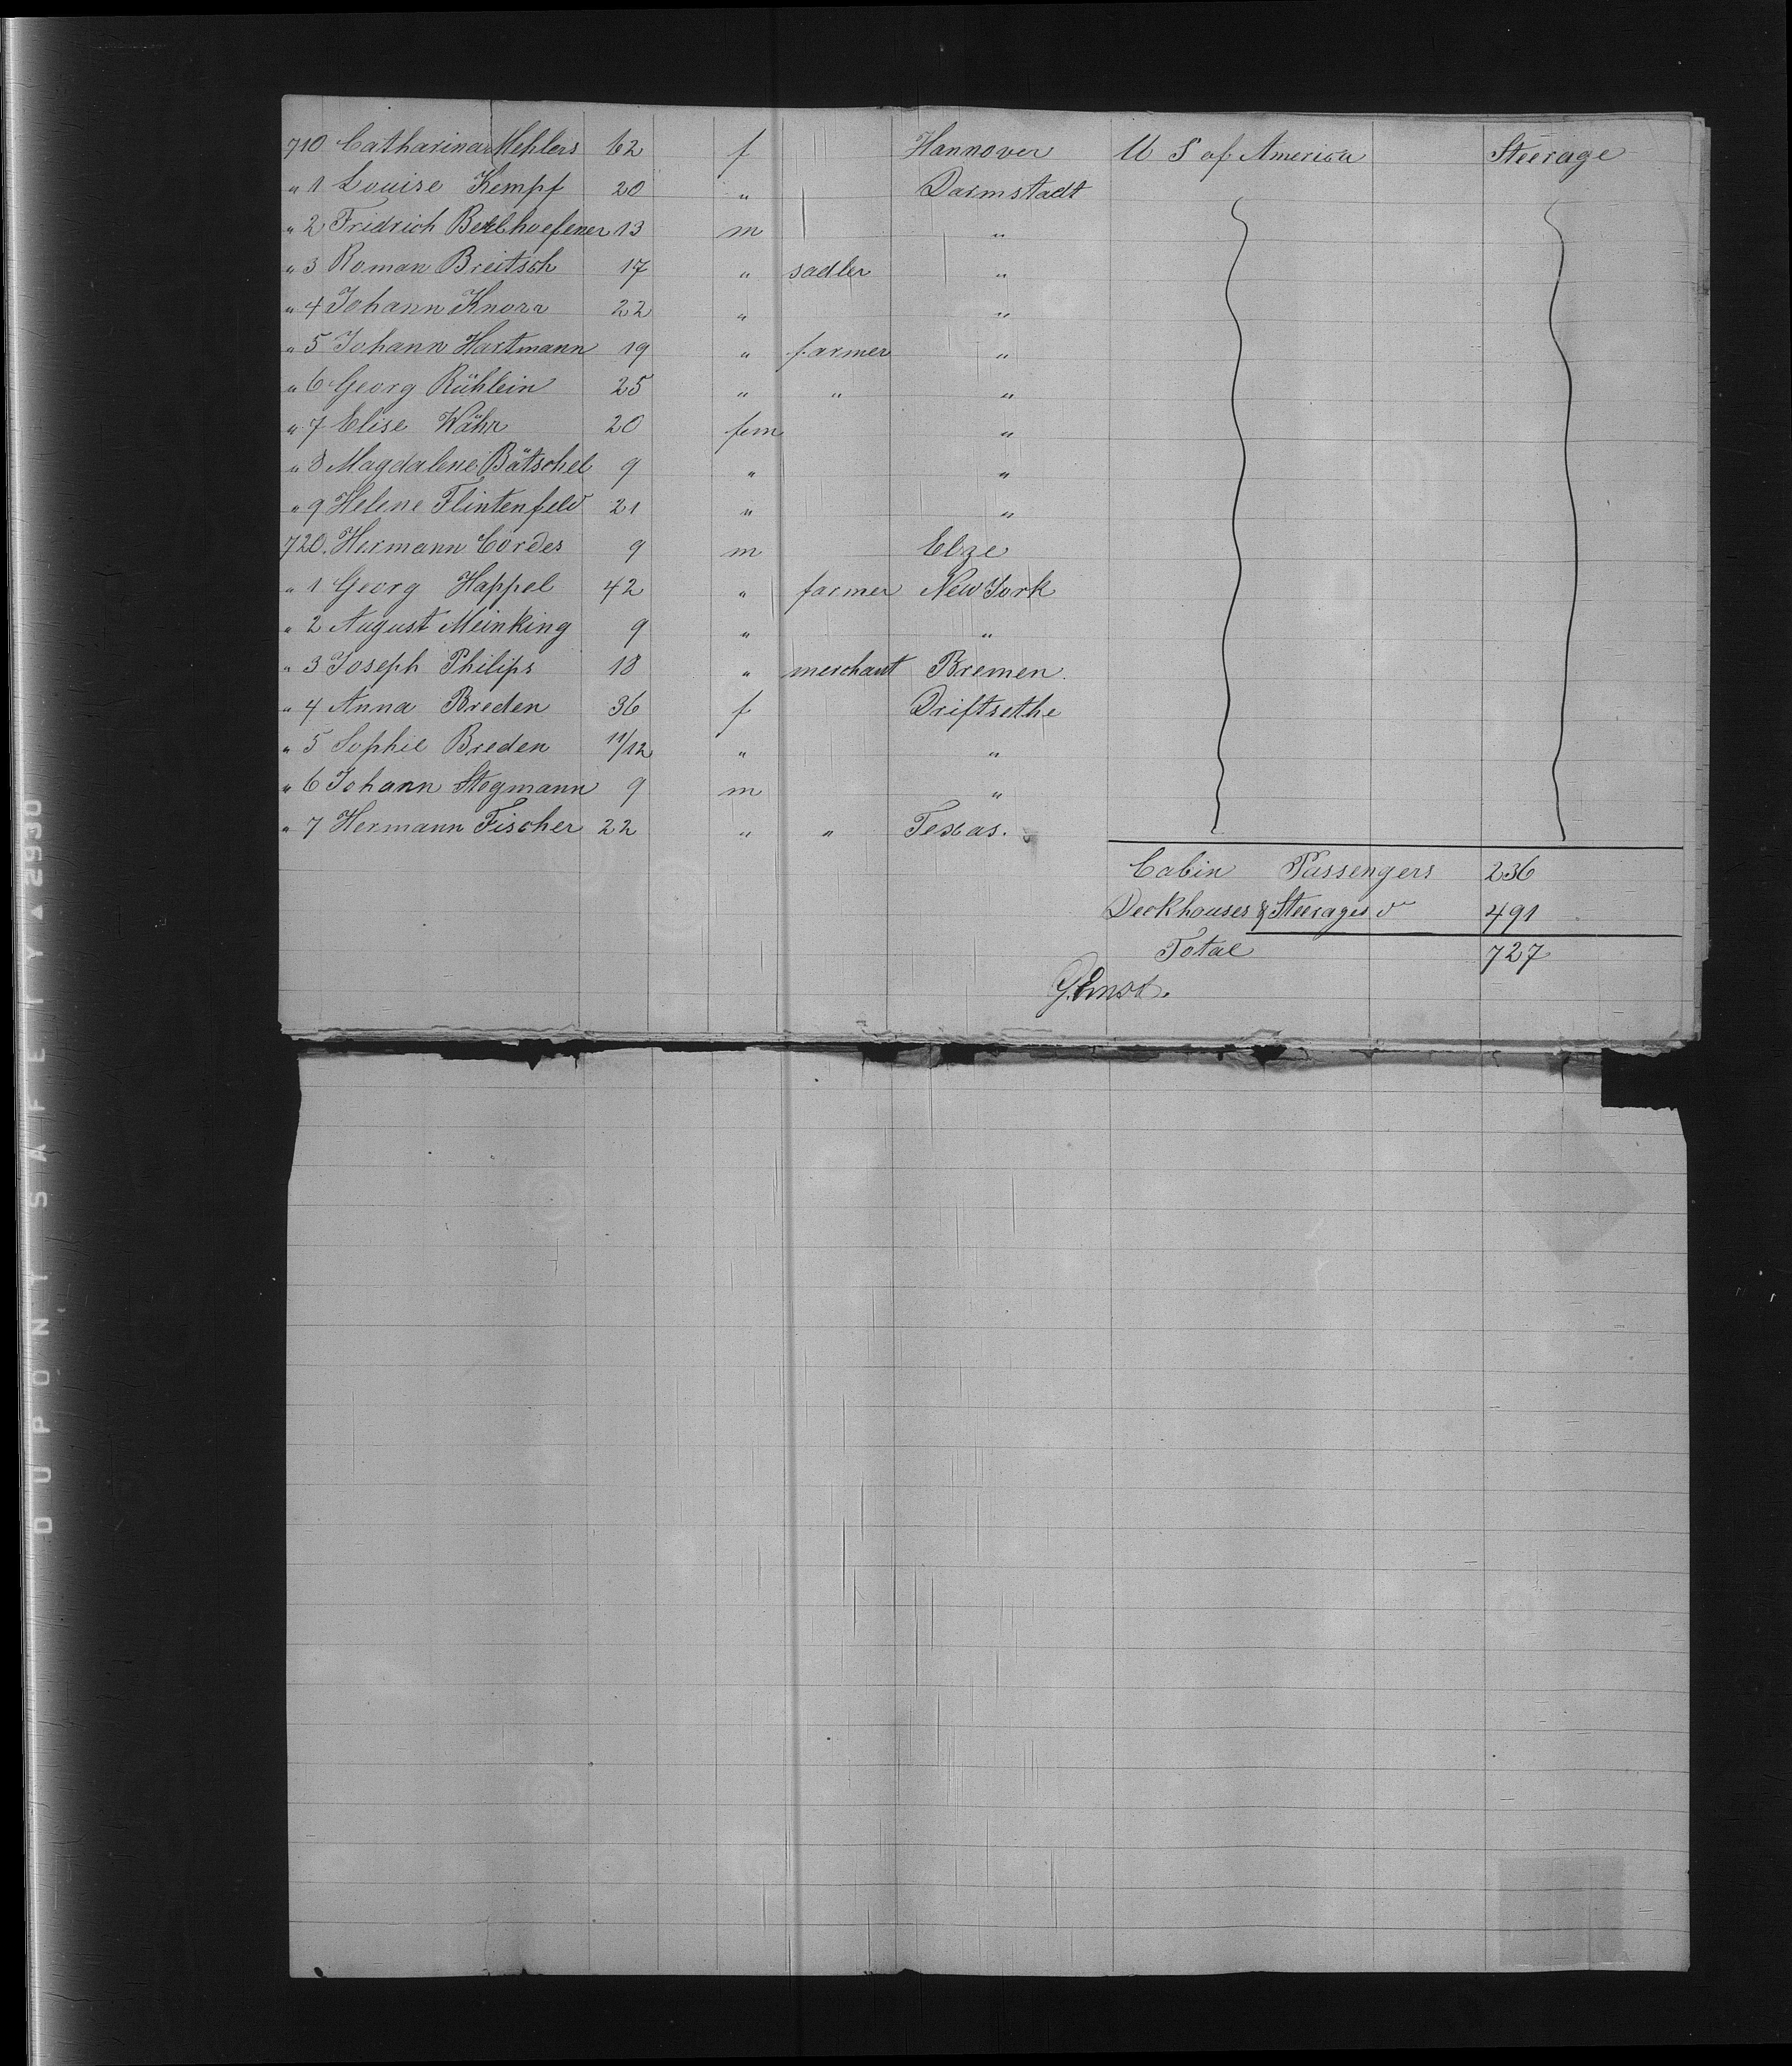 710 Catharina Mehlers 62 f Hannover U S of America Steerage
" 1 Louise Kempf 20 " Darmstadt
" 2 Fridrich 13 m "
" 3 Roman Breitsch 17 " sadler "
" 4 Johann Knorr 22 " "
" 5 Johann Hartmann 19 " farmer "
" 6 Georg Rühlein 25 " " "
" 7 Elise Währ 20 fem "
" 8 Magdalene Bätschel 9 " "
" 9 Helene Flintenfeld 21 " "
720. Hermann Cordes 9 m Elze
" 1 Georg Happel 42 " farmer New York
" 2 August Meinking 9 " "
" 3 Joseph Philips 18 " merchant Bremen.
" 4 Anna Breden 36 f Driftsethe
" 5 Sophie Breden 11/12 " "
" 6 Johann Stegmann 9 m "
" 7 Hermann Fischer 22 " " Texas.
Cabin Passengers 236
Deckhouses & Steerages 491
Total 727
G. Ernst.
DUPONT SAFETY ▲ 2930